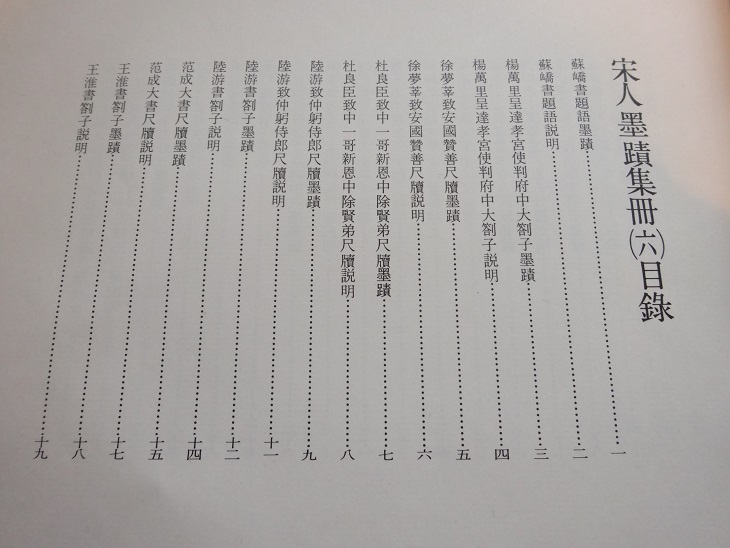 宋人墨蹟集冊(六)目錄
蘇嶠書題語墨蹟……一
蘇嶠書題語説明……二
楊萬里呈達孝宮使判府中大劄子墨蹟……三
楊萬里呈達孝宮使判府中大劄子説明……四
徐夢莘致安國贊善尺牘墨蹟……五
徐夢莘致安國贊善尺牘説明……六
杜良臣致中一哥新恩中除賢弟尺牘墨蹟……七
杜良臣致中一哥新恩中除賢弟尺牘説明……八
陸游致仲躬侍郎尺牘墨蹟……九
陸游致仲躬侍郎尺牘説明……十一
陸游書劄子墨蹟……十二
陸游書劄子説明……十四
范成大書尺牘墨蹟……十五
范成大書尺牘説明……十七
王淮書劄子墨蹟……十八
王淮書劄子説明……十九